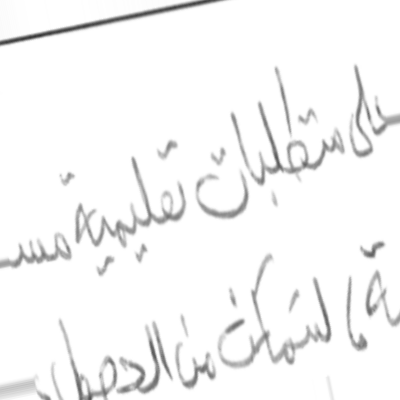 على متطلبات تعليمية مسـ
ـة، لتتمكن من الحصول